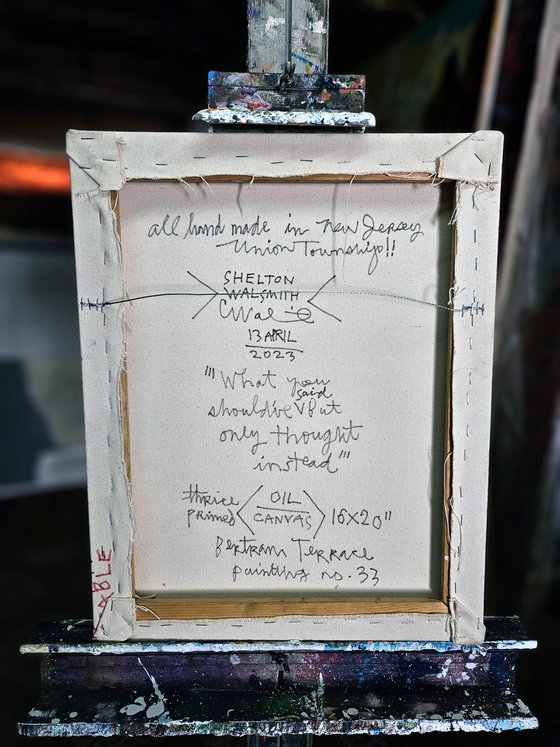 all hand made in New Jersey
Union Township!!
SHELTON
WALSMITH
13 APRIL
2023
"'What you
said
should've V But
only thought
instead'"
thrice
primed
OIL
CANVAS
16X20"
Bertram Terrace
painting no. 33
ABLE